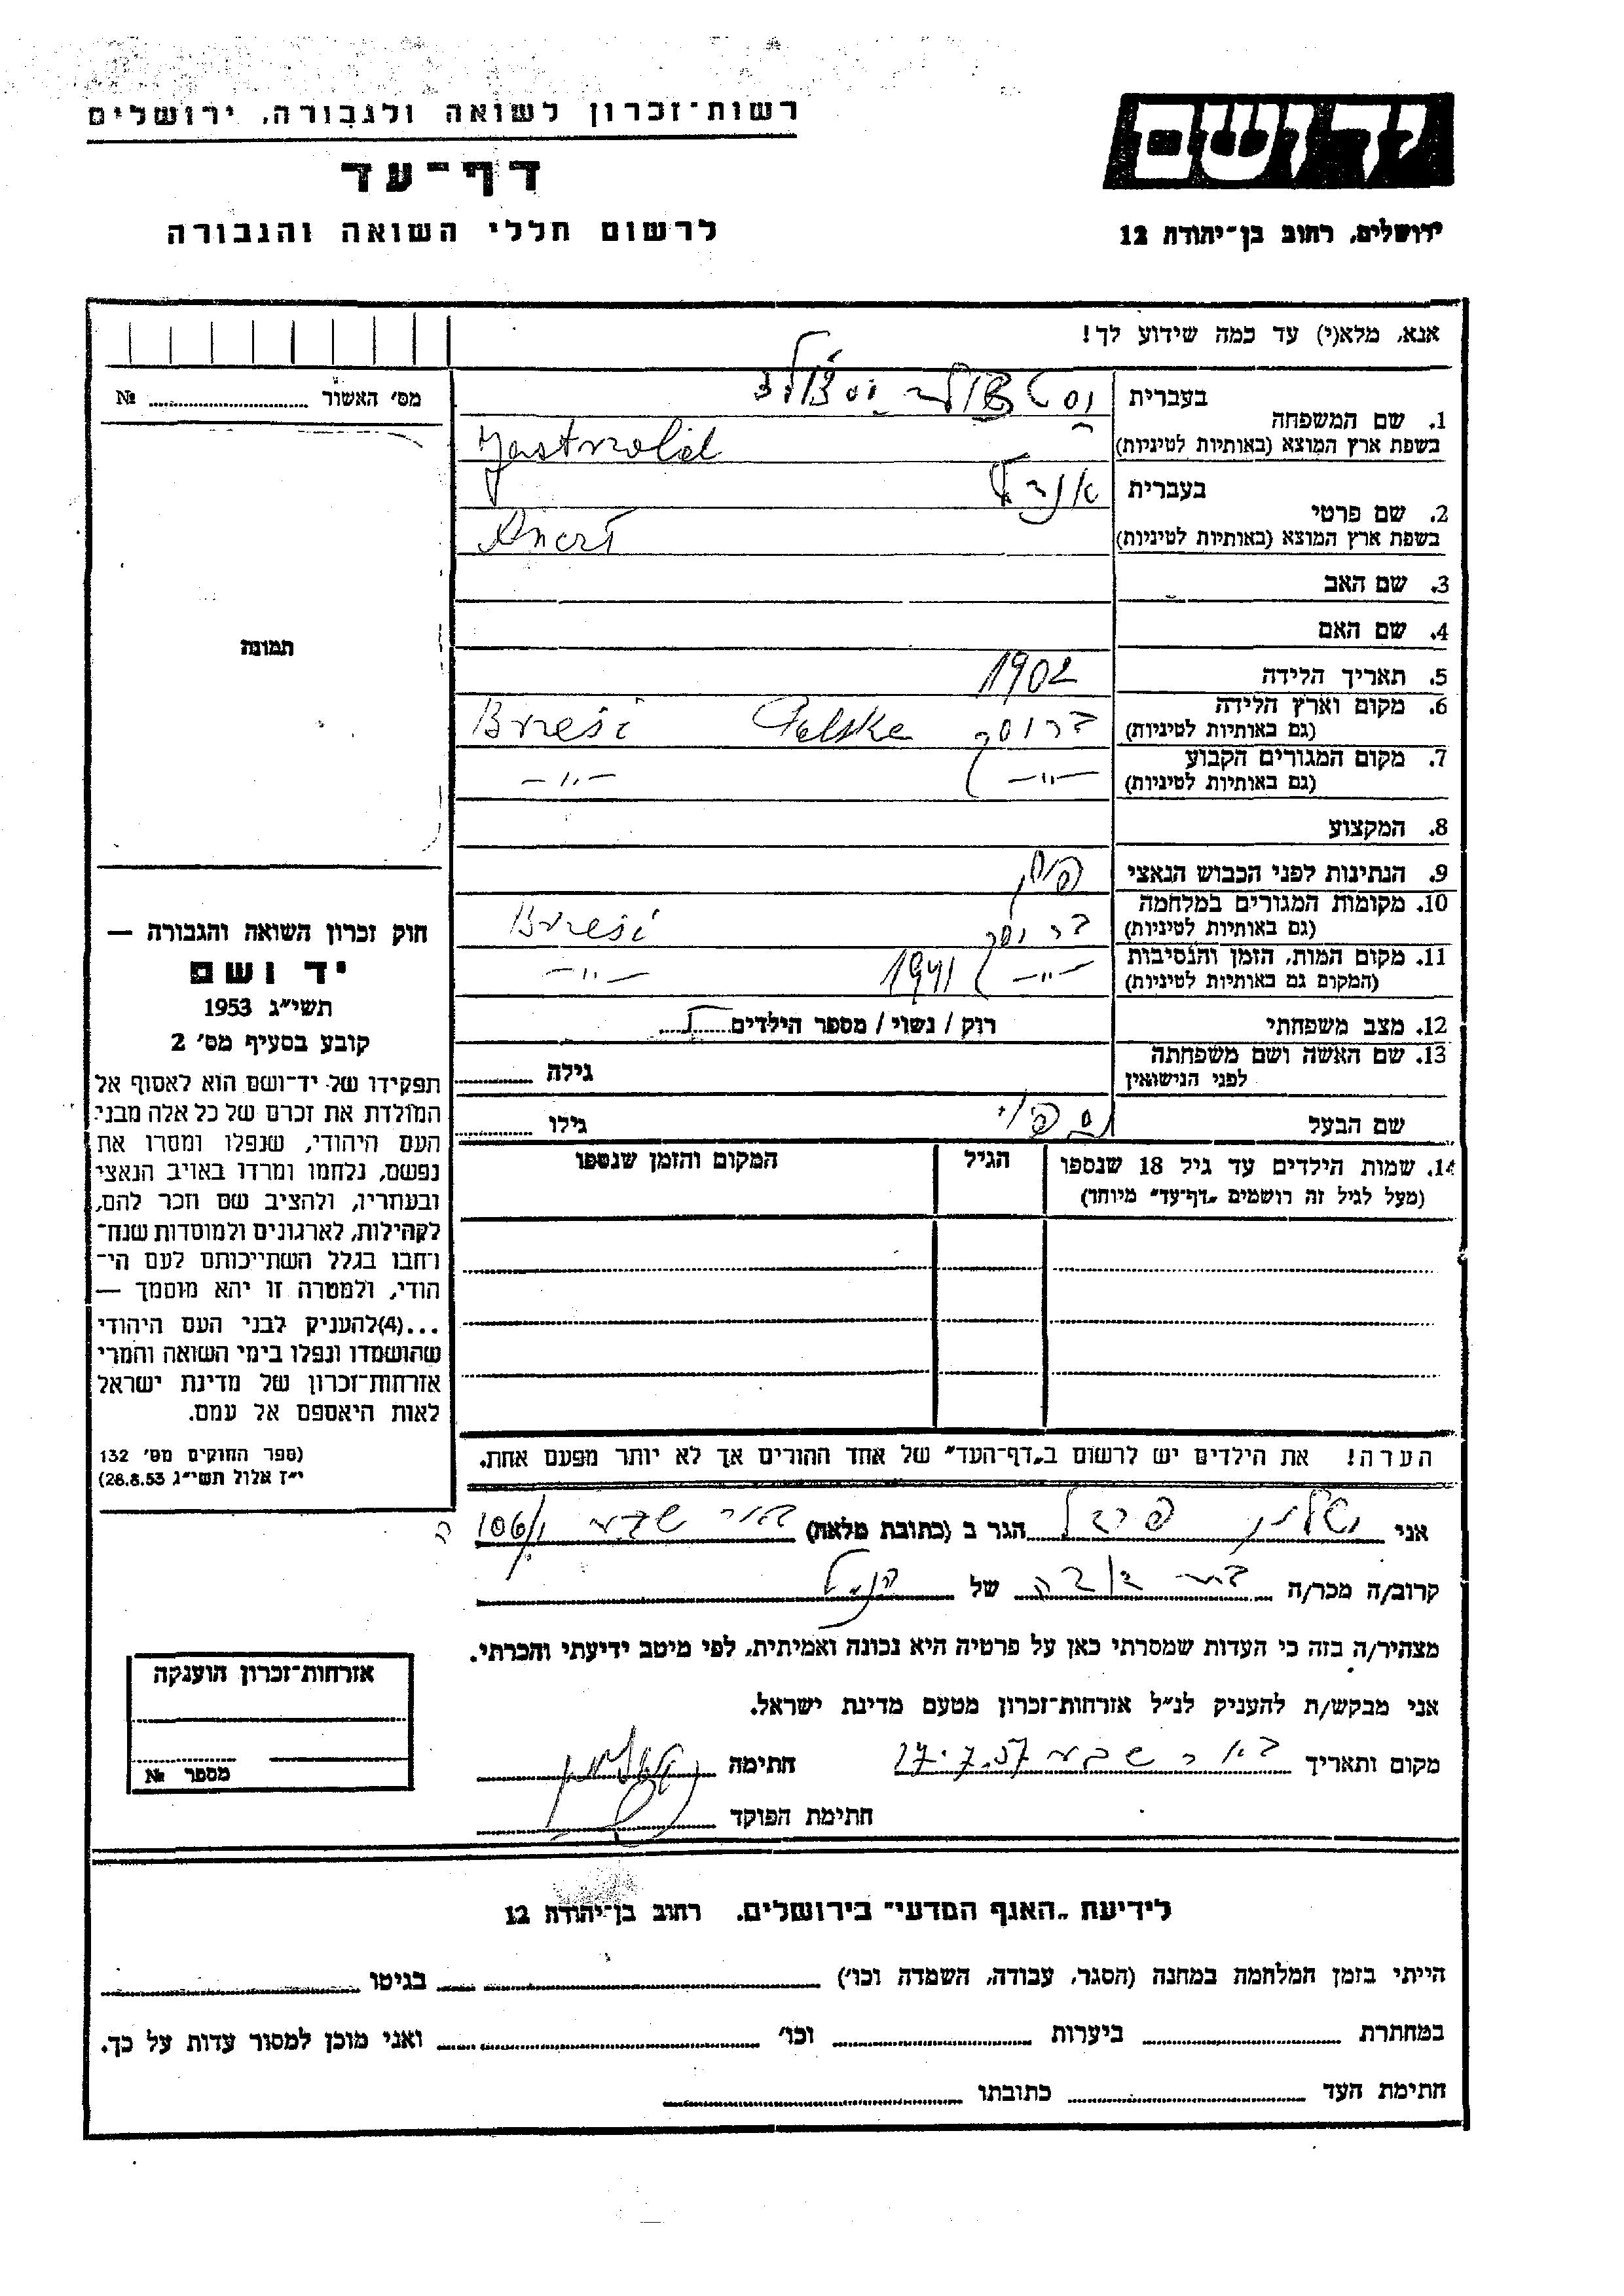 רשות־זכרון לשואה ולגבורה, ירושלים
דף־עד
לרשום חללי השואה והגבורה
יד ושם
ירושלים, רחוב בן־יהודה 12
אנא, מלא(י) עד כמה שידוע לך!
מס׳ האשור № 
1. שם המשפחה
בעברית
בשפת ארץ המוצא (באותיות לטיניות)
2. שם פרטי
בעברית
בשפת ארץ המוצא (באותיות לטיניות)
3. שם האב
4. שם האם
5. תאריך הלידה 1902
6. מקום וארץ הלידה
(גם באותיות לטיניות) Brześć Polska
7. מקום המגורים הקבוע
(גם באותיות לטיניות) —"— —"—
8. המקצוע
9. הנתינות לפני הכבוש הנאצי
10. מקומות המגורים במלחמה
(גם באותיות לטיניות) Brześć
11. מקום המות, הזמן והנסיבות
(המקום גם באותיות לטיניות) —"— 1941 —"—
12. מצב משפחתי רוק / נשוי / מספר הילדים
13. שם האשה ושם משפחתה
לפני הנישואין גילה
שם הבעל גילו
14. שמות הילדים עד גיל 18 שנספו
(מעל לגיל זה רושמים „דף־עד" מיוחד)
הגיל
המקום והזמן שנספו
תמונה
חוק זכרון השואה והגבורה —
יד ושם
תשי״ג 1953
קובע בסעיף מס׳ 2
תפקידו של יד־ושם הוא לאסוף אל
המולדת את זכרם של כל אלה מבני
העם היהודי, שנפלו ומסרו את
נפשם, נלחמו ומרדו באויב הנאצי
ובעוזריו, ולהציב שם וזכר להם,
לקהילות, לארגונים ולמוסדות שנח־
רחבו בגלל השתייכותם לעם הי־
הודי, ולמטרה זו יהא מוסמך —
...(4)להעניק לבני העם היהודי
שהושמדו ונפלו בימי השואה והמרי
אזרחות־זכרון של מדינת ישראל
לאות היאספם אל עמם.
(ספר החוקים מס׳ 132
י״ז אלול תשי״ג 28.8.53)
הערה! את הילדים יש לרשום ב„דף־העד" של אחד ההורים אך לא יותר מפעם אחת.
אני הגר ב (כתובת מלאה) באר שבע
קרוב/ה מכר/ה של
מצהיר/ה בזה כי העדות שמסרתי כאן על פרטיה היא נכונה ואמיתית, לפי מיטב ידיעתי והכרתי.
אני מבקש/ת להעניק לנ״ל אזרחות־זכרון מטעם מדינת ישראל.
מקום ותאריך באר שבע 17.7.57 חתימה
חתימת הפוקד
אזרחות־זכרון הוענקה
מספר №
לידיעת „האגף המדעי" בירושלים. רחוב בן־יהודה 12
הייתי בזמן המלחמה במחנה (הסגר, עבודה, השמדה וכו׳) בגיטו
במחתרת ביערות וכו׳ ואני מוכן למסור עדות על כך.
חתימת העד כתובתו